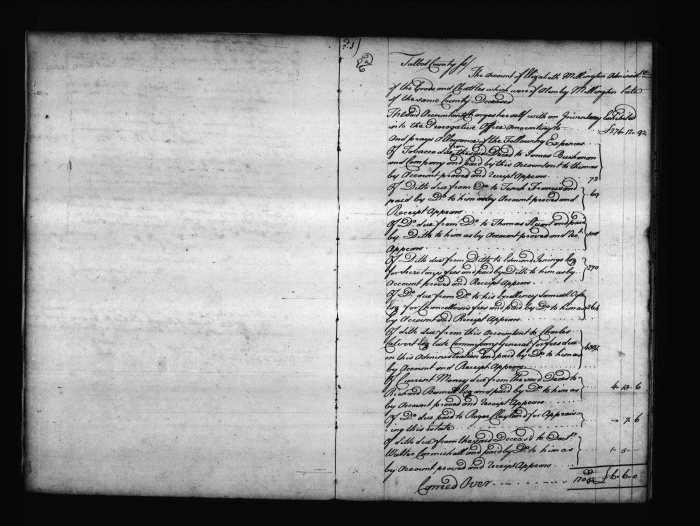 Talbot County ss
The Account of Elizabeth Millington Administ
of the Goods and Chattles which were of Allemby Millington late
of the same County Deceased
The said Accountant Charges herself with an Inventory Exhibited
into the Prerogative Office Amounting to
And prays Allowance of the Following Expences
Of Tobacco due from the said Deced to James Buchanan
and Company and paid by this Accountant to him as
by Account proved and Receipt Appears 72
Of Ditto due from Do to
paid by Do to him as by Account proved and
Receipt Appears
Of Do due from Do to Thomas Stuart and paid
by Ditto to him as by Account proved and
Appears
Of Ditto due from Ditto to Edmund Jenings Esq
for Secretarys fees and paid by Ditto to him as by 270
Account proved and Receipt Appears
Of Do due from Do to his Excellency Samuel Ogle
Esq for Chancellors fees and paid by Do to him as
by Account and Receipt Appears
Of Ditto due from this Accountant to Charles
Calvert Esq late Commissary General for fees due
on this Administration and paid by Do to him as
by Account and Receipt Appears
Of Current Money due from the said Deced to
Richard Bennett Esq and paid by Do to him as 4 13 6
by Account proved and Receipt Appears
Of Do due paid to Roger Clayland for Apprais
ing this Estate 7 6
Of Ditto due from the said Deceased to Doctr
Walter Carmichael and paid by Do to him as 1 5
by Account proved and Receipt Appears
Carried Over £6 6 0